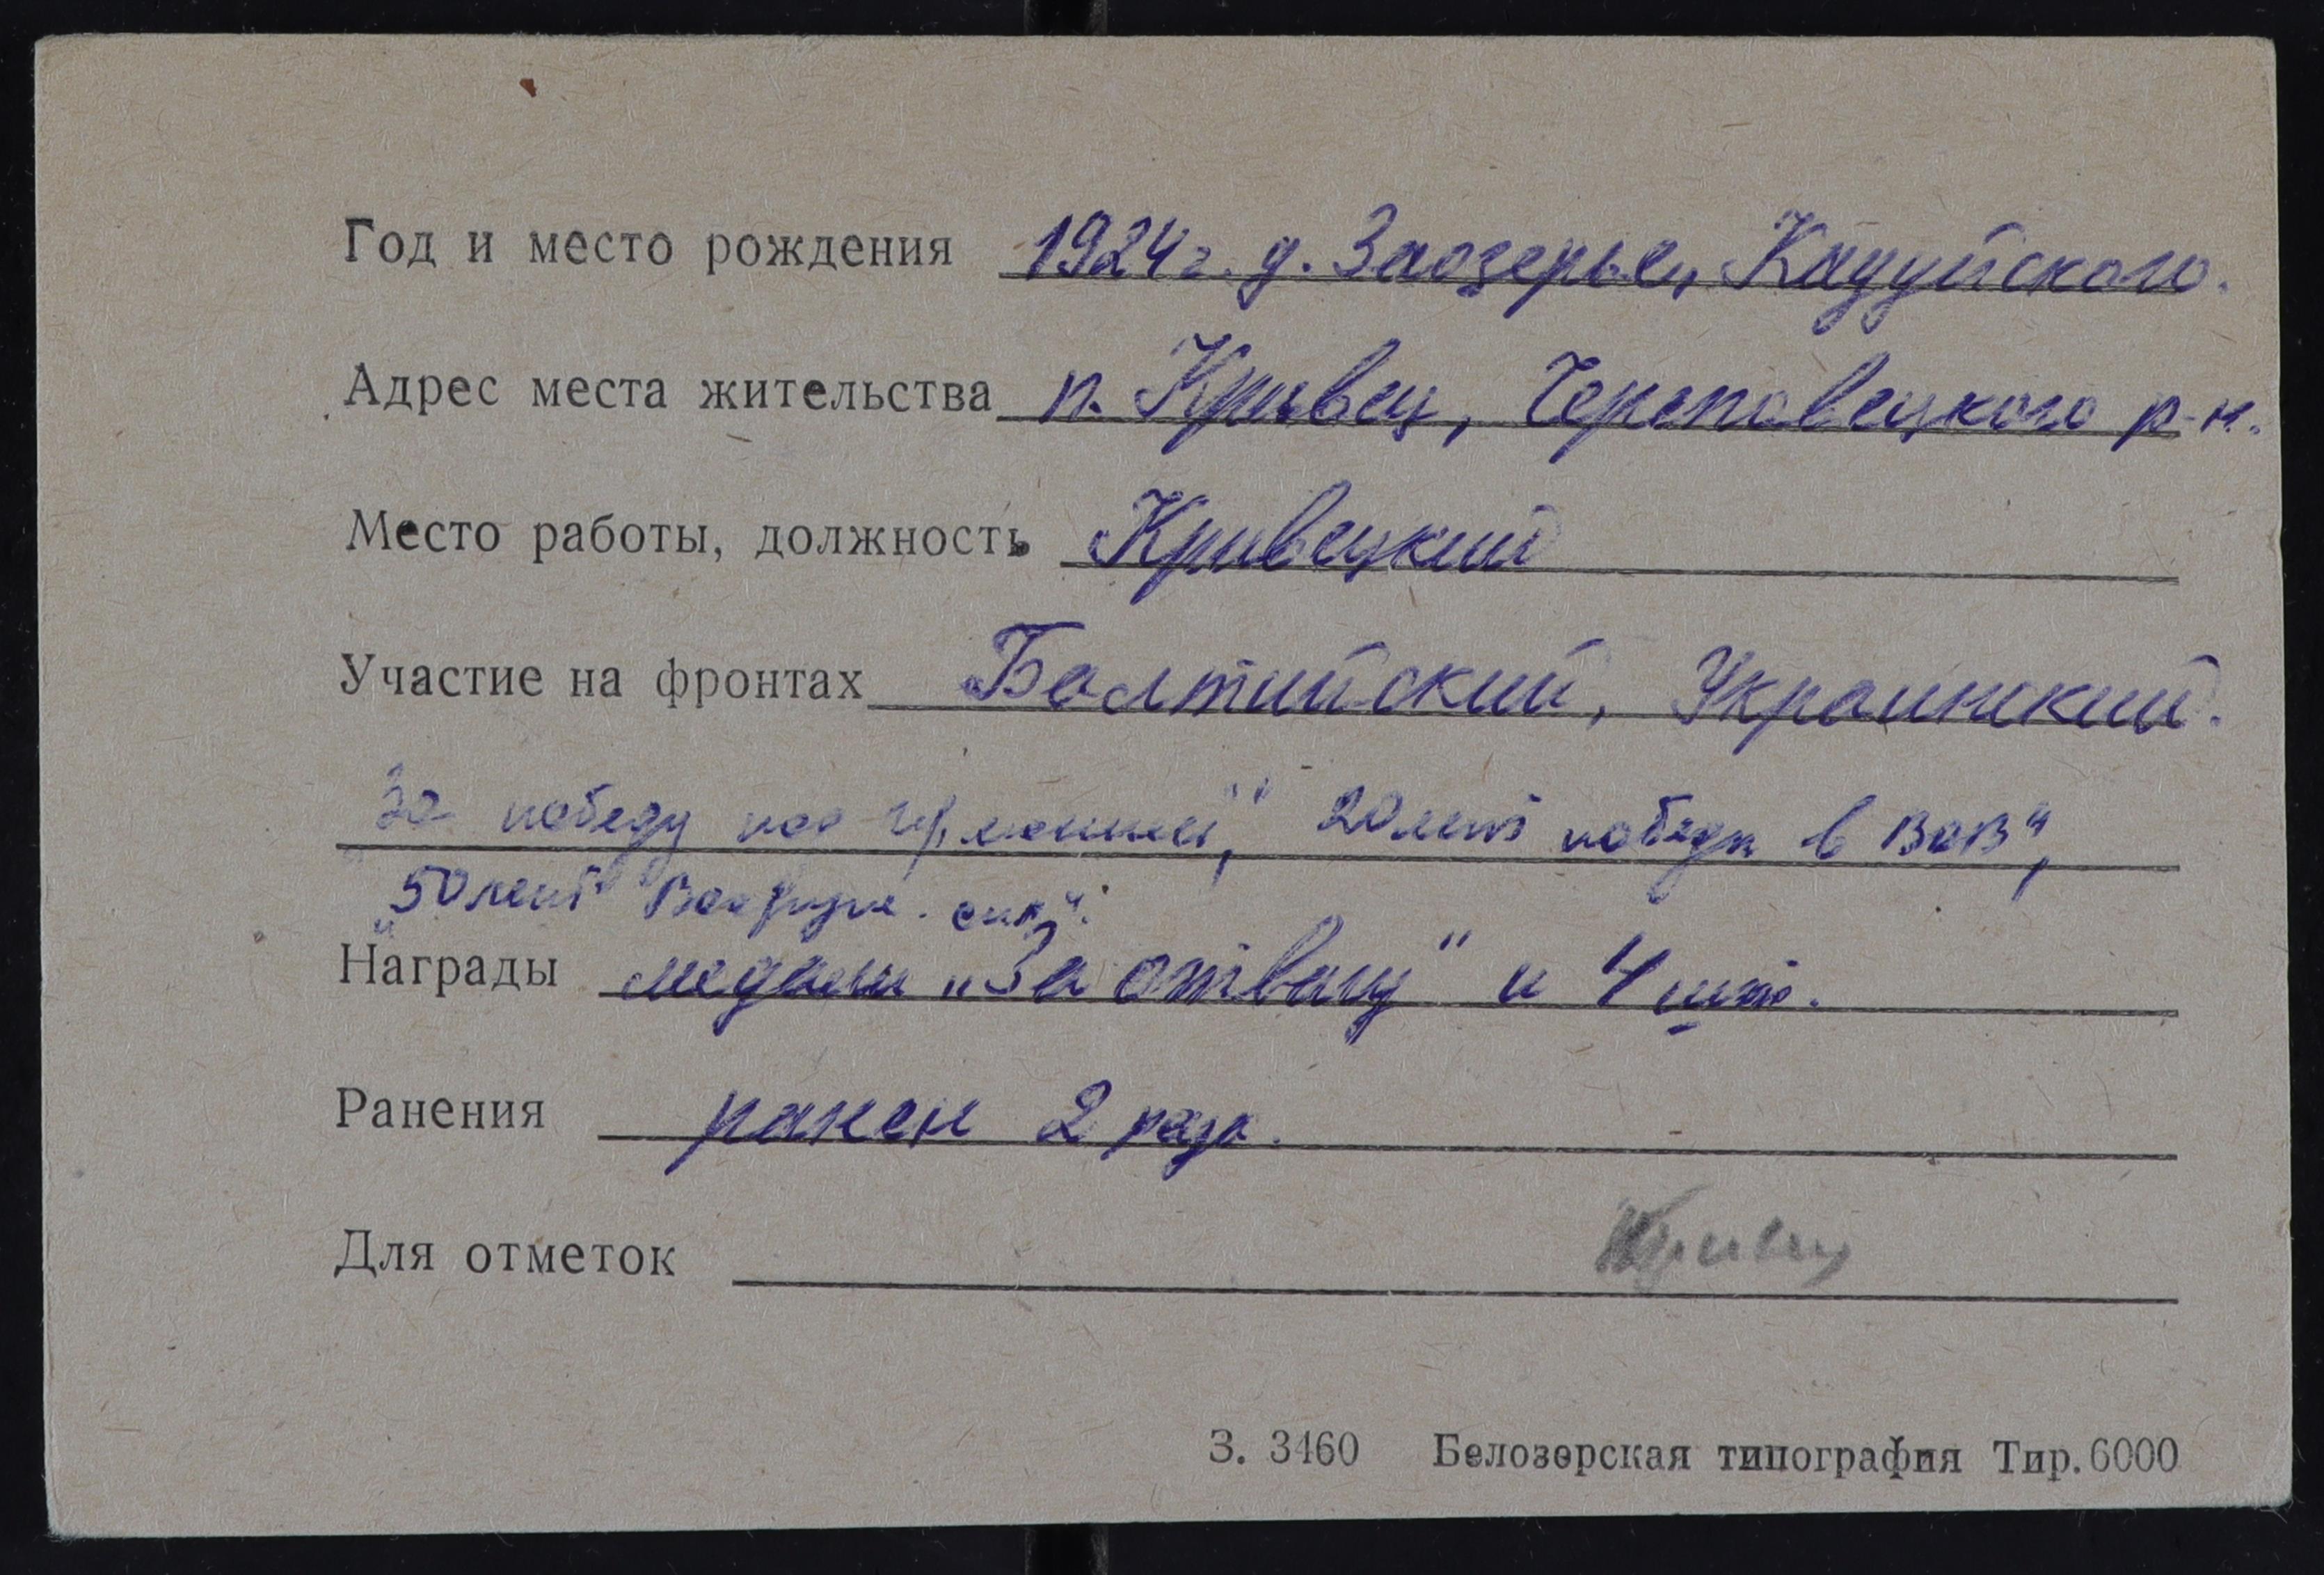 Год и место рождения 1924 г. д. Заозерье, Кадуйского.
Адрес места жительства п. Кривец, Череповецкого р-н.
Место работы, должность Кривецкий
Участие на фронтах Балтийский, Украинский.
За победу над Германией", 20 лет победы в ВОВ",
„50 лет Вооруж. сил".
Награды медали „За отвагу" и 4 шт.
Ранения ранен 2 раза.
Для отметок Кривец
З. 3460 Белозерская типография Тир. 6000